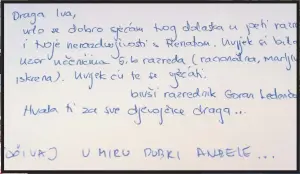 Draga Iva,
vrlo se dobro sjećam tvog dolaska u peti razred
i tvoje nerazdvojivosti s Renatom. Uvijek si bila
uzor učenicima 5.b razreda (racionalna, marljiva
iskrena). Uvijek ću te se sjećati.
bivši razrednik Goran
Hvala ti za sve djevojčice draga...
U MIRU ANĐELE...